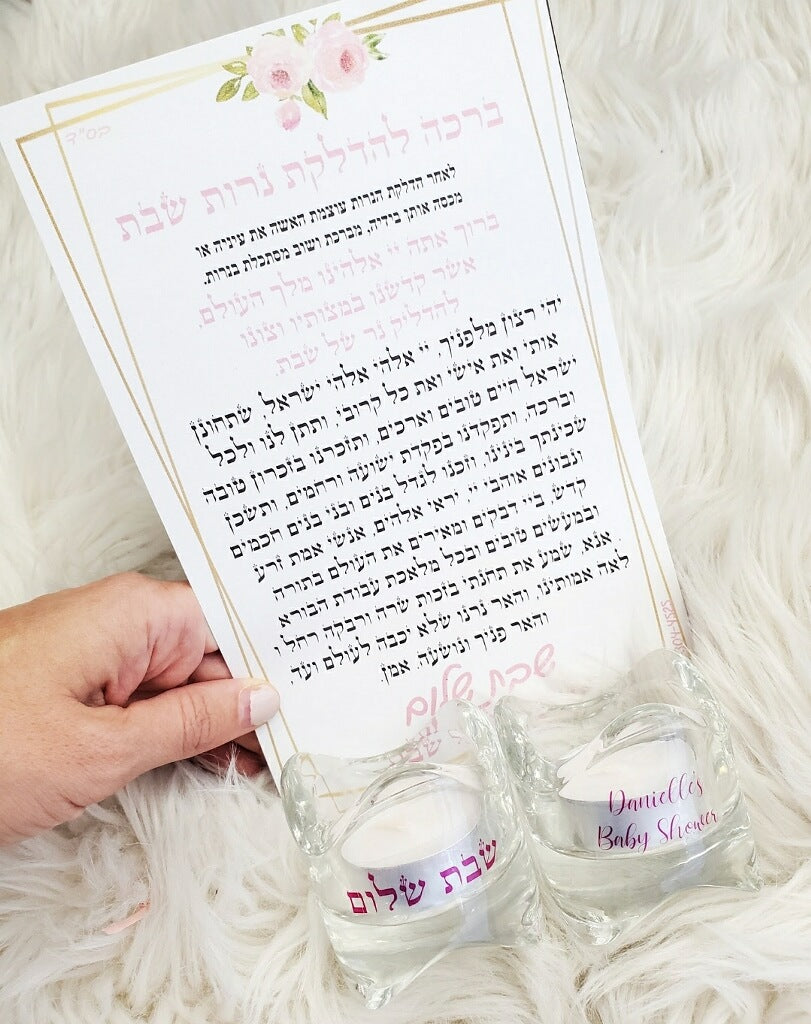 בס"ד
ברכה להדלקת נרות שבת
לאחר הדלקת הנרות עוצמת האשה את עיניה או
מכסה אותן בידיה, מברכת ושוב מסתכלת בנרות.
ברוך אתה יי אלהינו מלך העולם,
אשר קדשנו במצותיו וצונו
להדליק נר של שבת.
יהי רצון מלפניך, יי אלהי אלהי ישראל, שתחונן
אותי ואת אישי ואת כל קרובי, ותתן לנו ולכל
ישראל חיים טובים וארכים, ותזכרנו בזכרון טובה
וברכה, ותפקדנו בפקדת ישועה ורחמים, ותשכן
שכינתך בינינו, וזכנו לגדל בנים ובני בנים חכמים
ונבונים אוהבי יי, יראי אלהים, אנשי אמת זרע
קדש, ביי דבקים ומאירים את העולם בתורה
ובמעשים טובים ובכל מלאכת עבודת הבורא.
אנא, שמע את תחנתי בזכות שרה ורבקה רחל ו
לאה אמותינו, והאר נרנו שלא יכבה לעולם ועד,
והאר פניך ונושעה, אמן.
שבת שלום
שבת
שבת שלום
Danielle's
Baby Shower